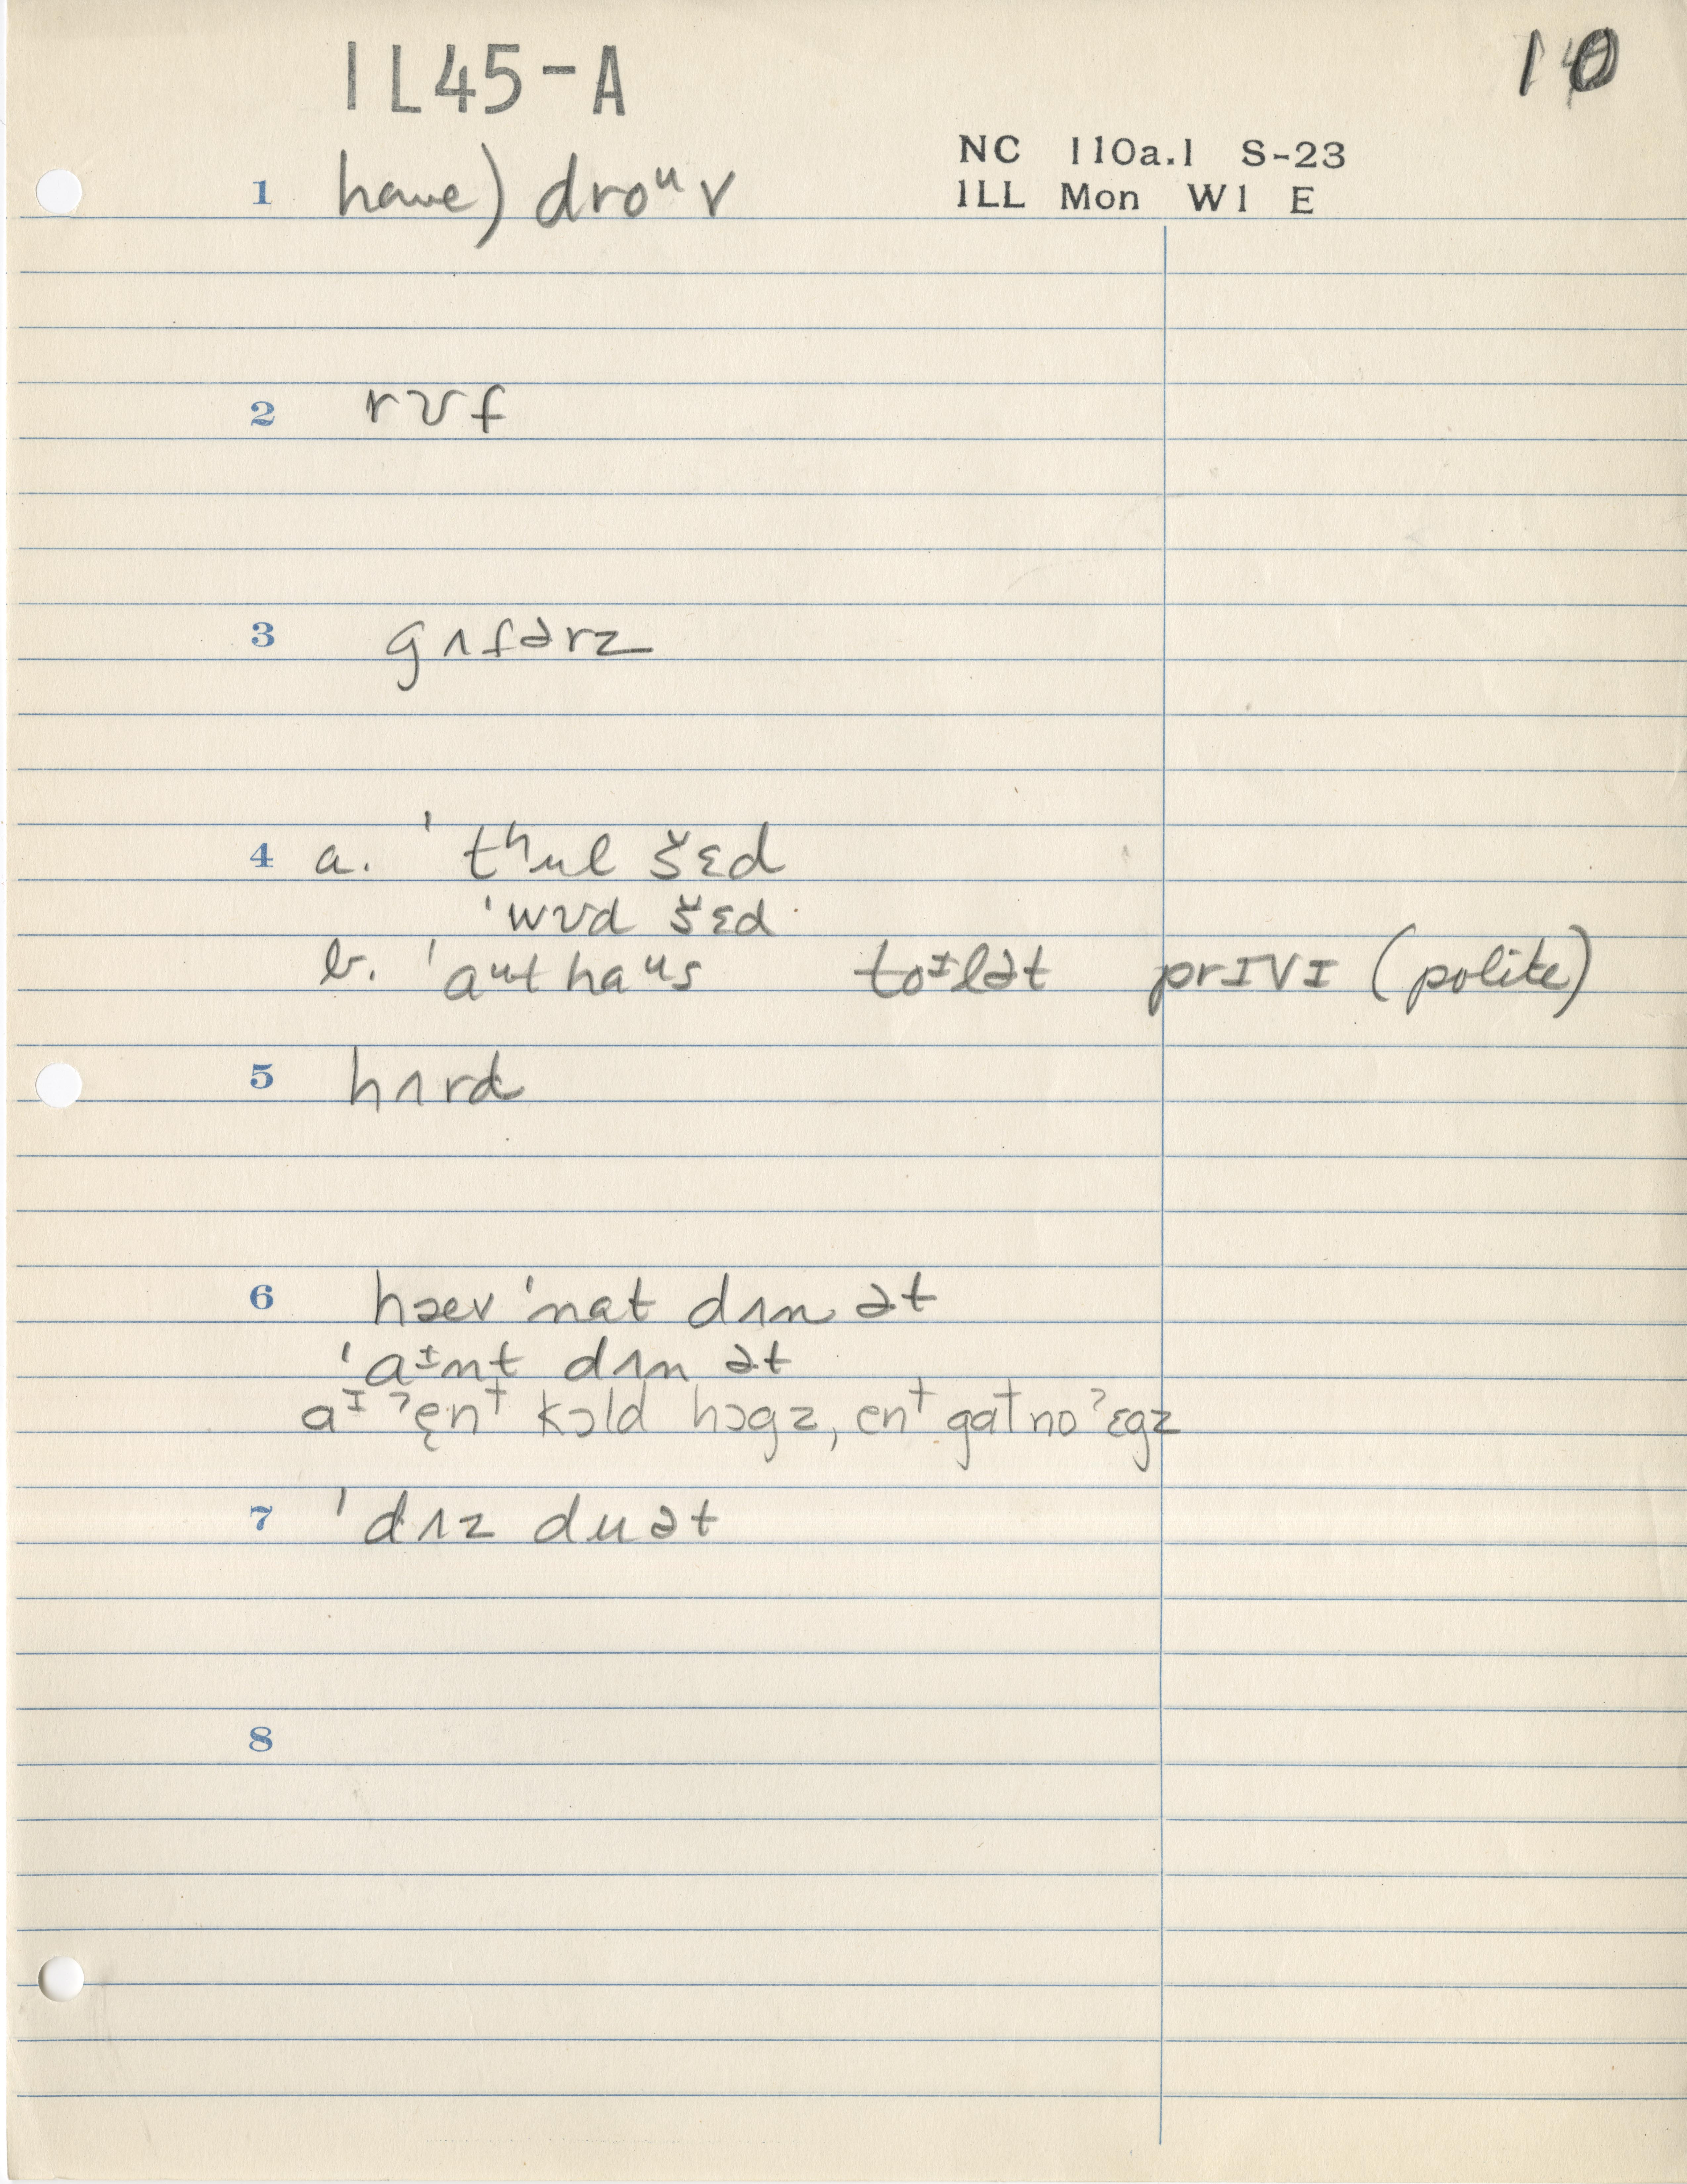 IL45-A
10
NC 110a.1 S-23
ILL Mon W1 E
1 have) droᵘv
2 rʊf
3 gʌfərz
4 a. ˈtʰul šɛd
ˈwʊd šɛd
b. ˈaᵘt haᵘs toᴵlət prɪvɪ (polite)
5 hʌrd
6 hæv ˈnat dʌn ət
ˈaᴵnt dʌn ət
aᴵ ˀę̃nᵗ kɔld hɔgz, enᵗ gaᵗ no ˀɛgz
7 ˈdʌz du ət
8